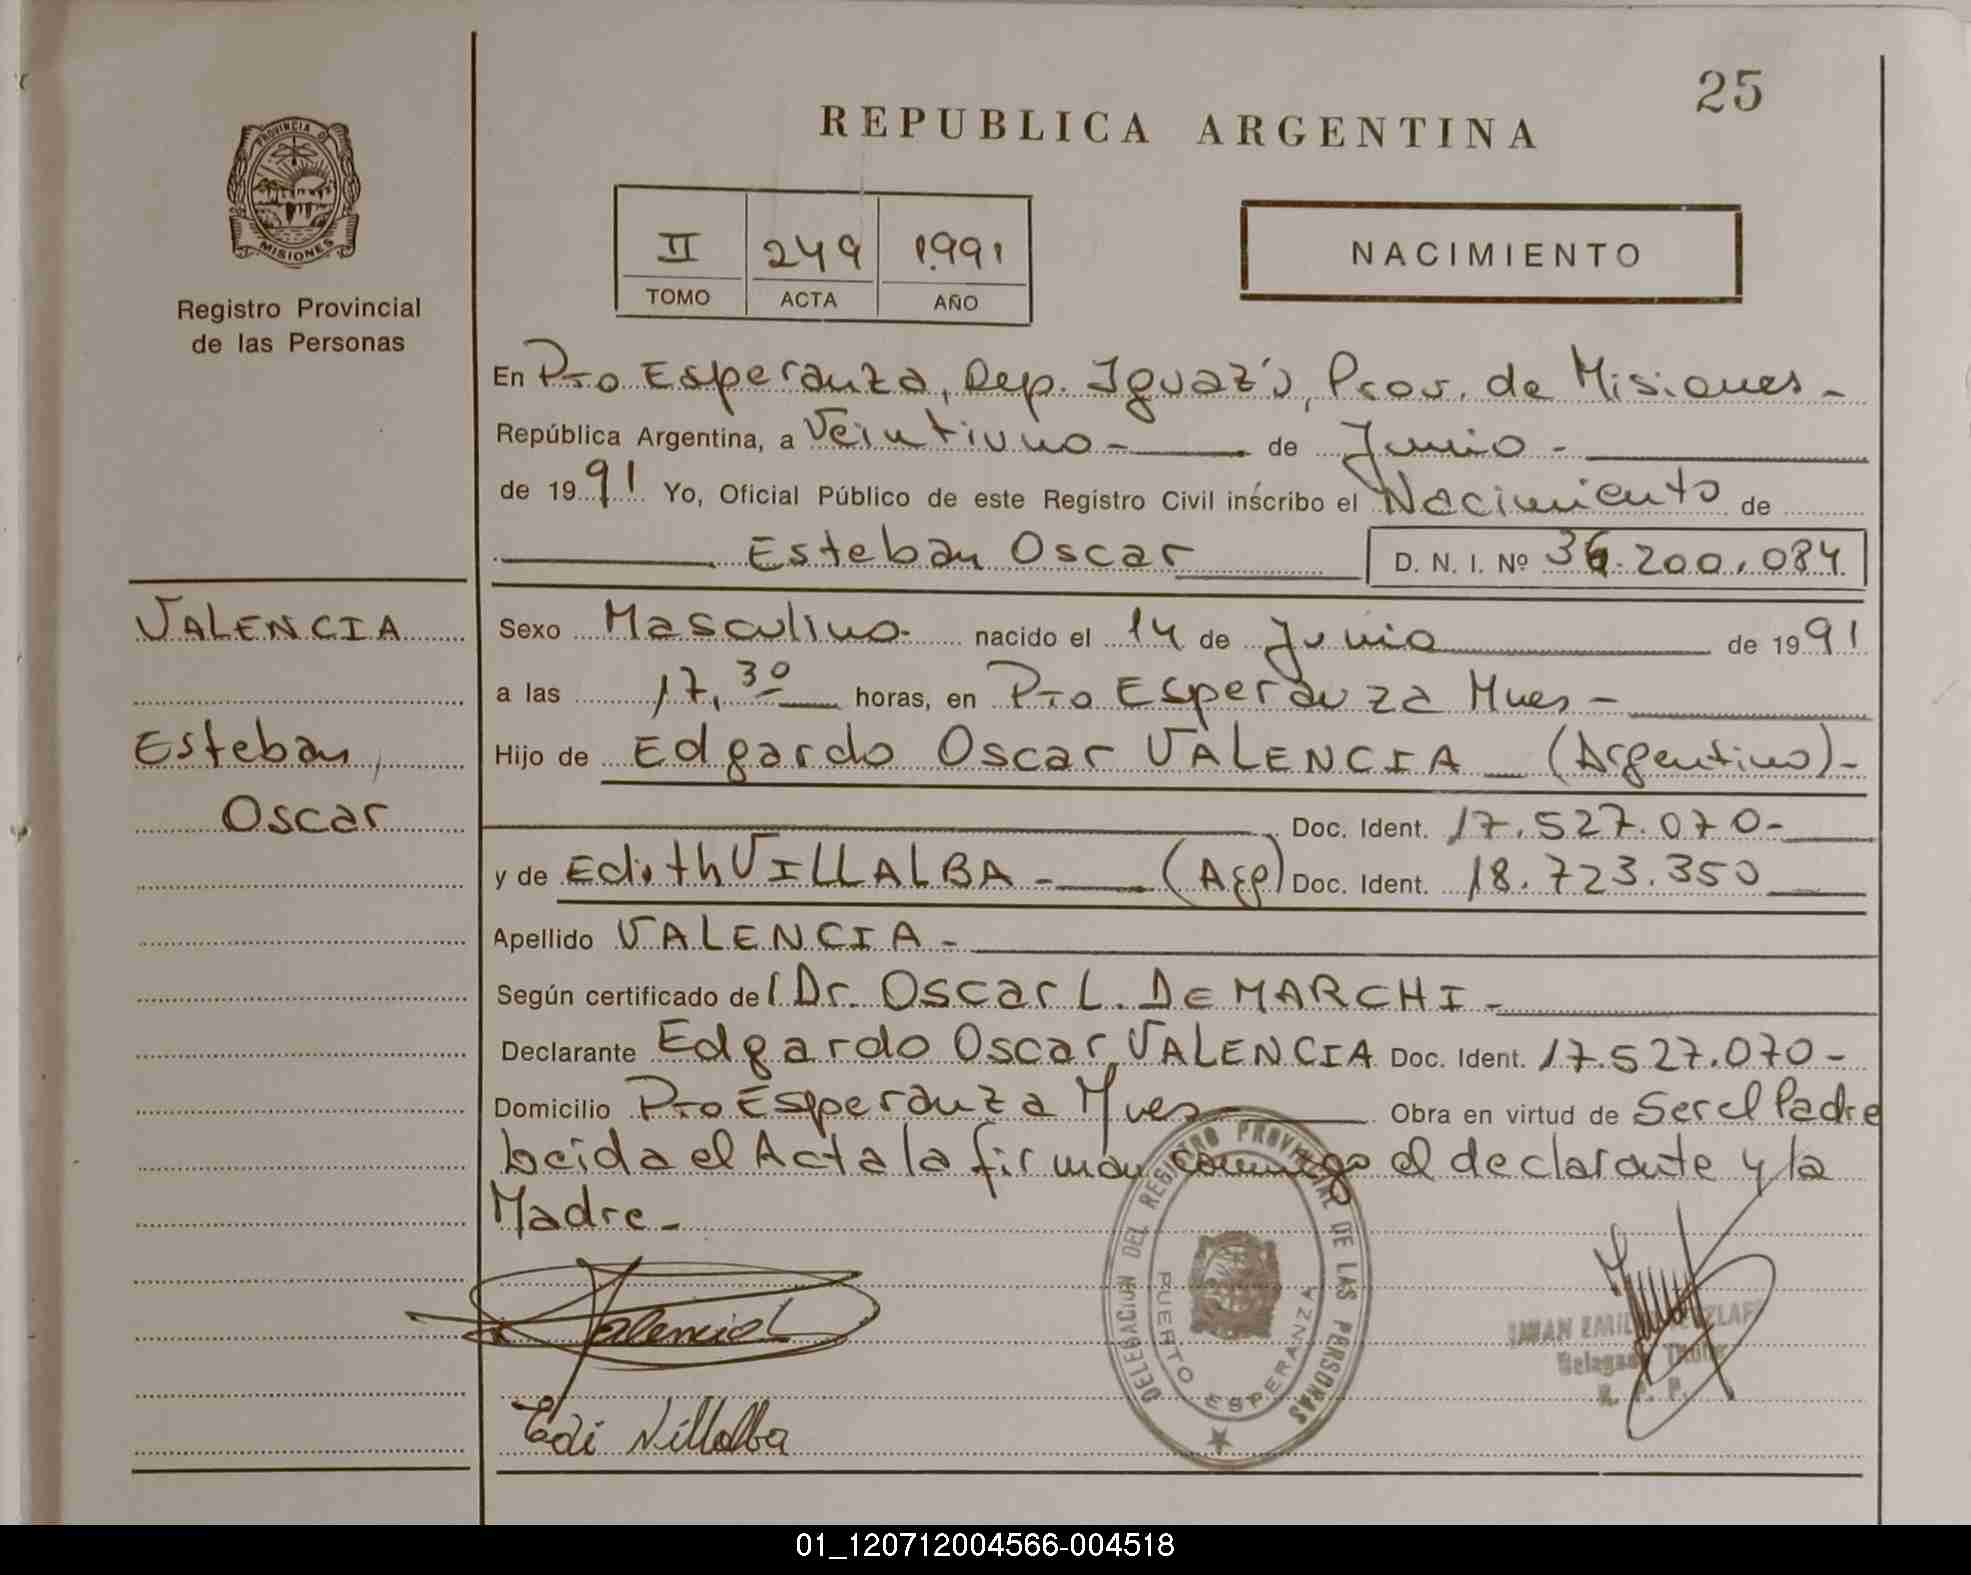 25
REPUBLICA ARGENTINA
PROVINCIA D
MISIONES
Registro Provincial
de las Personas
II 249 1.991
TOMO ACTA AÑO
NACIMIENTO
En Pto Esperanza, Dep. Iguazú, Prov. de Misiones -
República Argentina, a Veintiuno - de Junio -
de 1991 Yo, Oficial Público de este Registro Civil inscribo el Nacimiento de
Esteban Oscar D. N. I. Nº 36.200.084
VALENCIA
Esteban,
Oscar
Sexo Masculino - nacido el 14 de Junio de 1991
a las 17,30 horas, en Pto Esperanza Mnes -
Hijo de Edgardo Oscar VALENCIA - (Argentino) -
Doc. Ident. 17.527.070 -
y de Edith VILLALBA - (Arg) Doc. Ident. 18.723.350
Apellido VALENCIA -
Según certificado del Dr. Oscar L. DE MARCHI -
Declarante Edgardo Oscar VALENCIA Doc. Ident. 17.527.070 -
Domicilio Pto Esperanza Mnes Obra en virtud de Ser el Padre
Leida el Acta la firman conmigo el declarante y la
Madre -
Valencia
Edi Villalba
DELEGACION DEL REGISTRO PROVINCIAL DE LAS PERSONAS
PUERTO ESPERANZA
R. P. P.
01_120712004566-004518